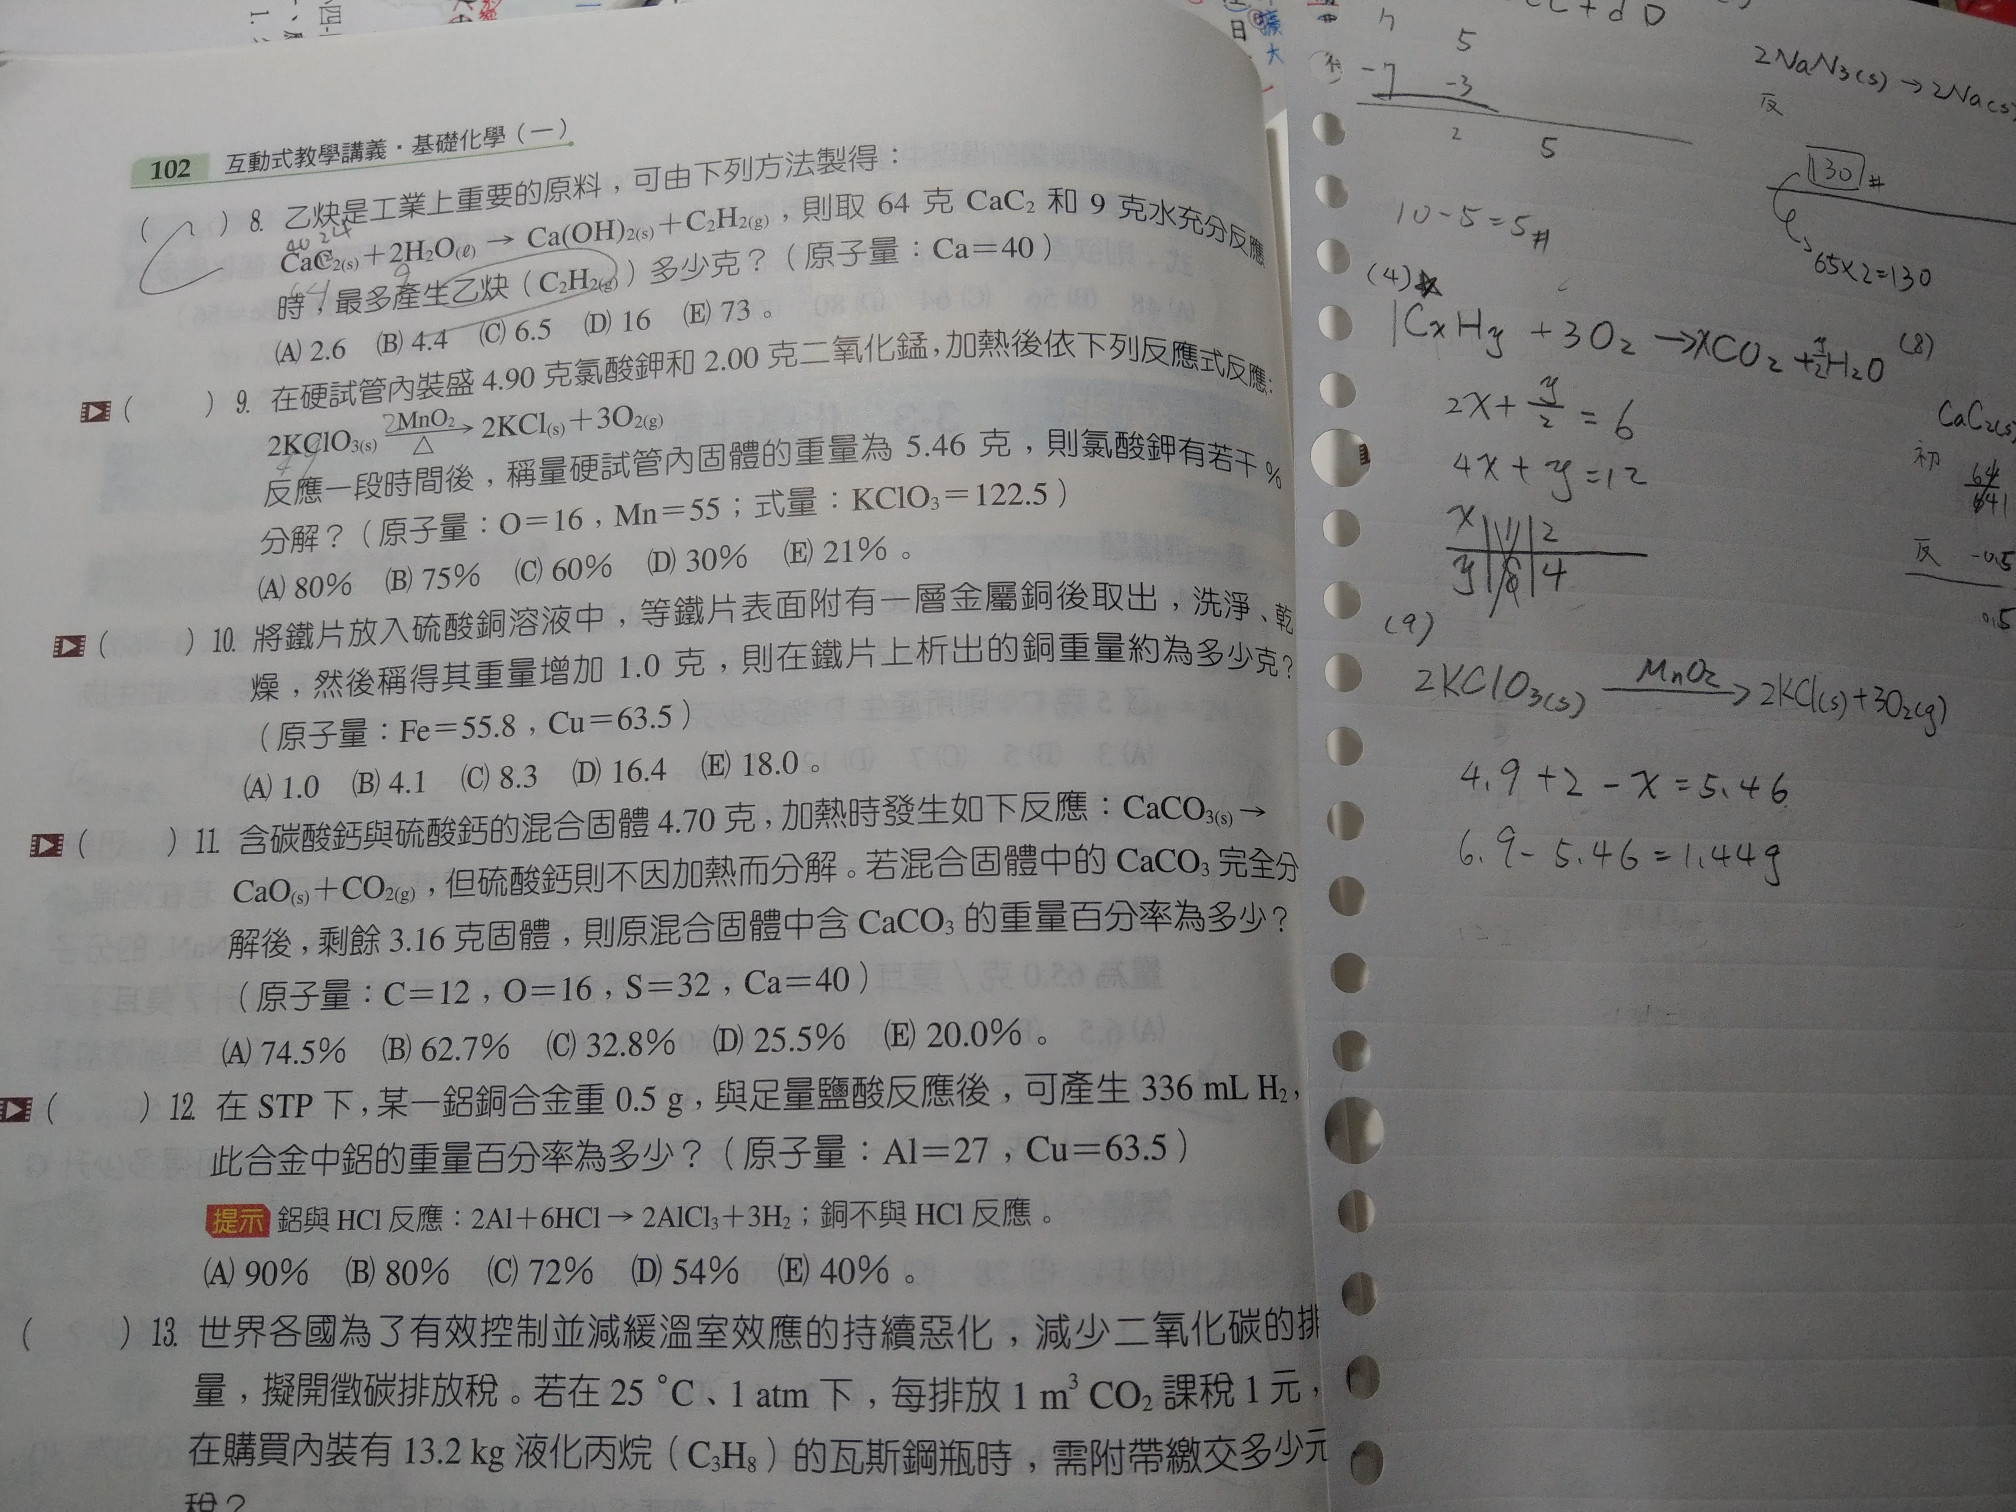 102 互動式教學講義・基礎化學(一)
( ) 8. 乙炔是工業上重要的原料，可由下列方法製得：
CaC2(s)+2H2O(ℓ) → Ca(OH)2(s)+C2H2(g)，則取 64 克 CaC2 和 9 克水充分反應
時，最多產生乙炔（C2H2(g)）多少克？（原子量：Ca=40）
(A) 2.6 (B) 4.4 (C) 6.5 (D) 16 (E) 73。
( ) 9. 在硬試管內裝盛 4.90 克氯酸鉀和 2.00 克二氧化錳，加熱後依下列反應式反應：
2KClO3(s) MnO2 △ → 2KCl(s)+3O2(g)
反應一段時間後，稱量硬試管內固體的重量為 5.46 克，則氯酸鉀有若干 %
分解？（原子量：O=16，Mn=55；式量：KClO3=122.5）
(A) 80% (B) 75% (C) 60% (D) 30% (E) 21%。
( ) 10. 將鐵片放入硫酸銅溶液中，等鐵片表面附有一層金屬銅後取出，洗淨、乾
燥，然後稱得其重量增加 1.0 克，則在鐵片上析出的銅重量約為多少克？
（原子量：Fe=55.8，Cu=63.5）
(A) 1.0 (B) 4.1 (C) 8.3 (D) 16.4 (E) 18.0。
( ) 11. 含碳酸鈣與硫酸鈣的混合固體 4.70 克，加熱時發生如下反應：CaCO3(s) →
CaO(s)+CO2(g)，但硫酸鈣則不因加熱而分解。若混合固體中的 CaCO3 完全分
解後，剩餘 3.16 克固體，則原混合固體中含 CaCO3 的重量百分率為多少？
（原子量：C=12，O=16，S=32，Ca=40）
(A) 74.5% (B) 62.7% (C) 32.8% (D) 25.5% (E) 20.0%。
( ) 12. 在 STP 下，某一鋁銅合金重 0.5 g，與足量鹽酸反應後，可產生 336 mL H2，
此合金中鋁的重量百分率為多少？（原子量：Al=27，Cu=63.5）
提示 鋁與 HCl 反應：2Al+6HCl → 2AlCl3+3H2；銅不與 HCl 反應。
(A) 90% (B) 80% (C) 72% (D) 54% (E) 40%。
( ) 13. 世界各國為了有效控制並減緩溫室效應的持續惡化，減少二氧化碳的排
量，擬開徵碳排放稅。若在 25 ℃、1 atm 下，每排放 1 m³ CO2 課稅 1 元，
在購買內裝有 13.2 kg 液化丙烷（C3H8）的瓦斯鋼瓶時，需附帶繳交多少元
稅？
+dD
5
-7 -3
2 5
10-5=5#
(4)
1CxHy + 3O2 → xCO2 + y/2 H2O
2x + y/2 = 6
4x + y = 12
x | 1 | 2
y | 8 | 4
(9)
2KClO3(s) MnO2 → 2KCl(s)+3O2(g)
4.9+2-x=5.46
6.9-5.46=1.44g
2NaN3(s) → 2Na(s)
反
130#
65x2=130
(8)
CaC2(s)
初 64
反 -0.5
0.5